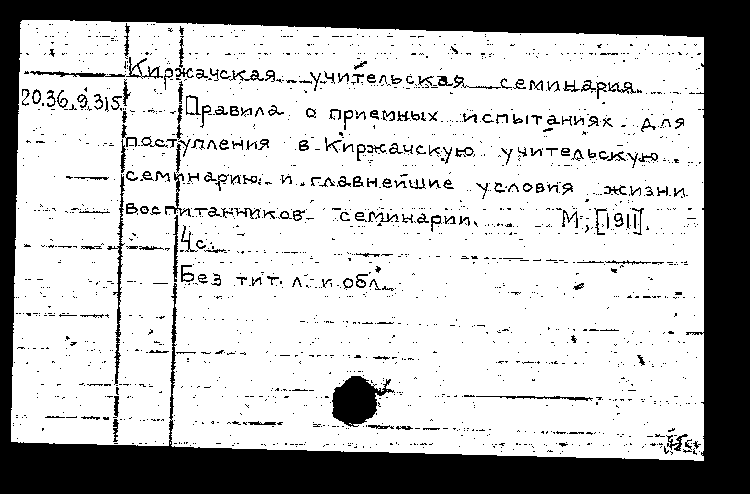 Киржачская учительская семинария.
20.36.9.315
Правила о приемных испытаниях для
поступления в Киржачскую учительскую
семинарию и главнейшие условия жизни
воспитанников семинарии. М., [1911].
4с.
Без тит. л. и обл.